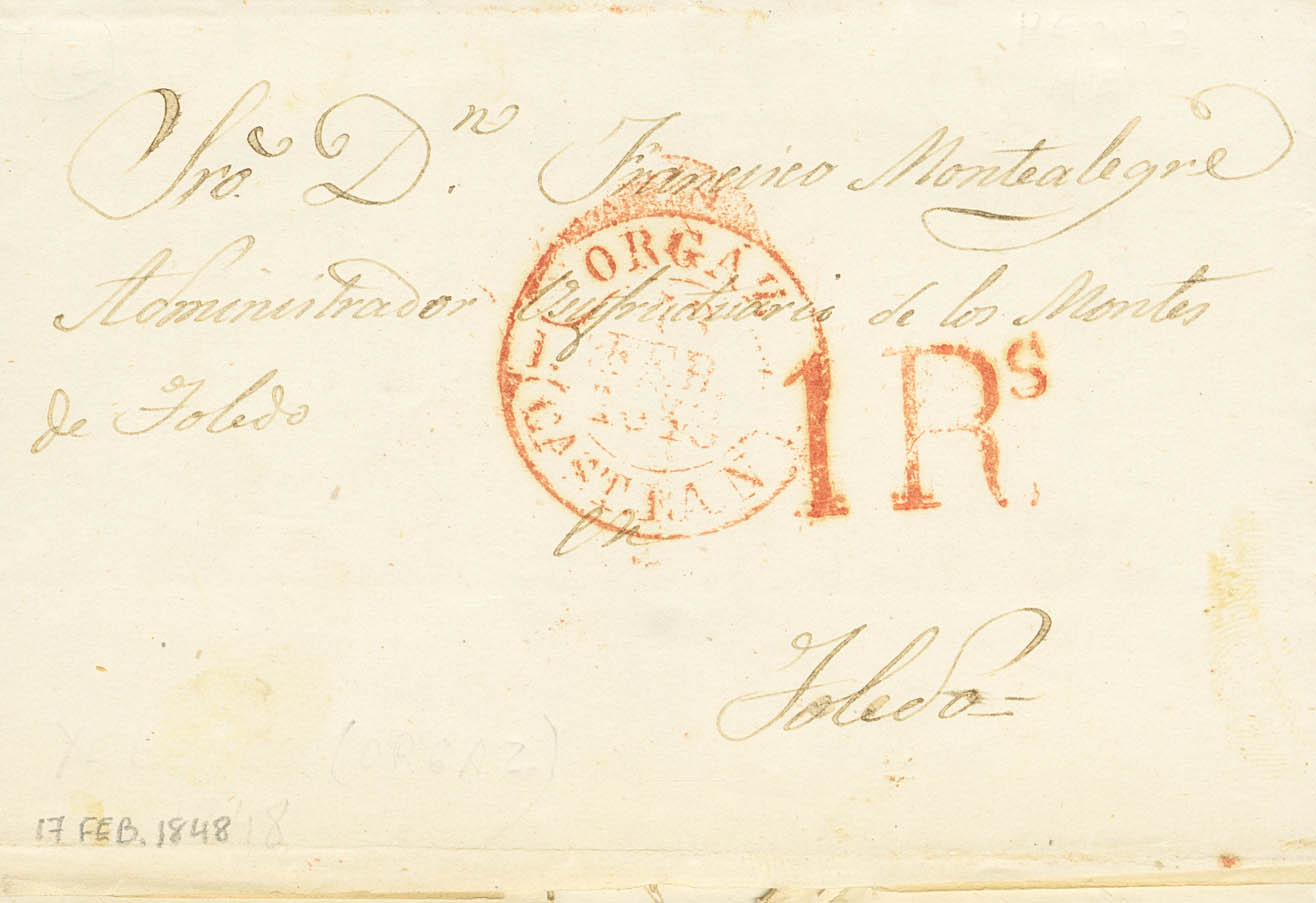 Sro. Dn. Francisco Montealegre
Administrador Usufructuario de los Montes
de Toledo
ORGAZ
FEB
1848
CAST. LA NVEVA
1 Rs
En
Toledo
(ORGAZ)
17 FEB. 1848